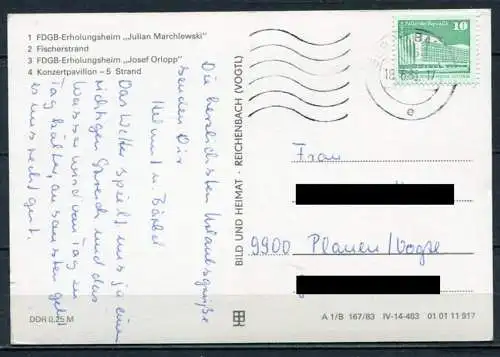 1 FDGB-Erholungsheim „Julian Marchlewski"
2 Fischerstrand
3 FDGB-Erholungsheim „Josef Orlopp"
4 Konzertpavillon – 5 Strand
Die herzlichsten Urlaubsgrüße
senden Dir
Helmut u. Bärbel
Das Wetter spielt uns ja einen
richtigen Streich und das
Wasser wird von Tag zu
Tag kälter, ansonsten geht
es uns recht gut.
DDR 0,25 M
BILD UND HEIMAT · REICHENBACH (VOGTL)
10
e
Frau
9900 Plauen/Vogtl
A 1/B 167/83 IV-14-483 01 01 11 917